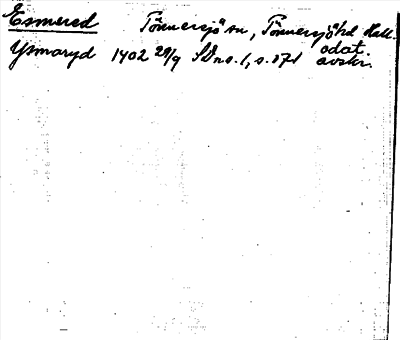 Esmered Tönnersjö sn, Tönnersjö hd Hall.
Ysmaryd 1402 29/9 SD ns. 1, s. 071 odat. avskr.